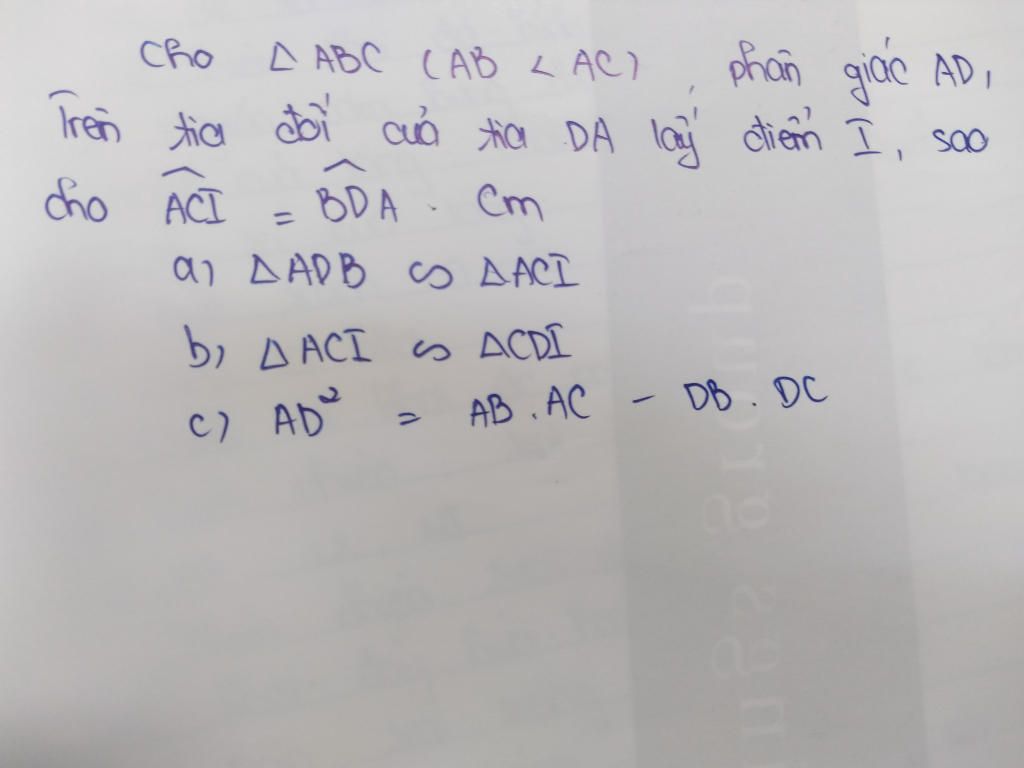 Cho △ ABC (AB < AC), phân giác AD,
Trên tia đối của tia DA lấy điểm I, sao
cho \widehat{ACI} = \widehat{BDA}. Cm
a) △ ADB ∽ △ACI
b) △ ACI ∽ △CDI
c) AD² = AB . AC - DB . DC